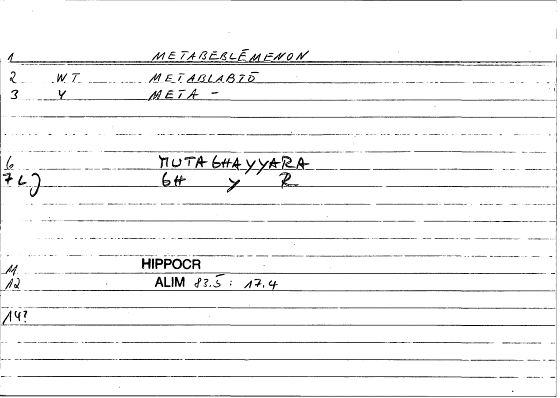 1 METABEBLĒMENON
2 W.T. METABLABTŌ
3 Y META -
6 MUTAGHAYYARA
7 L) GH Y R
11 HIPPOCR
12 ALIM 83.5 : 17.4
14?